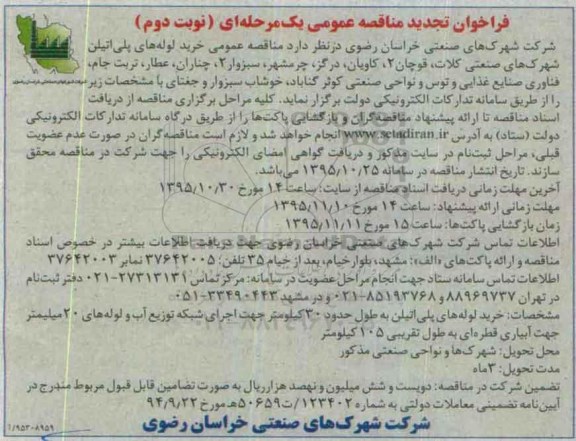 فراخوان تجدید مناقصه عمومی یک‌مرحله‌ای (نوبت دوم)
شرکت شهرک‌های صنعتی خراسان رضوی درنظر دارد مناقصه عمومی خرید لوله‌های پلی‌اتیلن
شهرک‌های صنعتی کلات، قوچان۲، کاویان، درگز، چرمشهر، سبزوار۲، چناران، عطار، تربت جام،
فناوری صنایع غذایی و توس و نواحی صنعتی کوثر گناباد، خوشاب سبزوار و جغتای با مشخصات زیر
را از طریق سامانه تدارکات الکترونیکی دولت برگزار نماید. کلیه مراحل برگزاری مناقصه از دریافت
اسناد مناقصه تا ارائه پیشنهاد مناقصه‌گران و بازگشایی پاکت‌ها را از طریق درگاه سامانه تدارکات الکترونیکی
دولت (ستاد) به آدرس www.setadiran.ir انجام خواهد شد و لازم است مناقصه‌گران در صورت عدم عضویت
قبلی، مراحل ثبت‌نام در سایت مذکور و دریافت گواهی امضای الکترونیکی را جهت شرکت در مناقصه محقق
سازند. تاریخ انتشار مناقصه در سامانه ۱۳۹۵/۱۰/۲۵ می‌باشد.
آخرین مهلت زمانی دریافت اسناد مناقصه از سایت: ساعت ۱۴ مورخ ۱۳۹۵/۱۰/۳۰
مهلت زمانی ارائه پیشنهاد: ساعت ۱۴ مورخ ۱۳۹۵/۱۱/۱۰
زمان بازگشایی پاکت‌ها: ساعت ۱۵ مورخ ۱۳۹۵/۱۱/۱۱
اطلاعات تماس شرکت شهرک‌های صنعتی خراسان رضوی جهت دریافت اطلاعات بیشتر در خصوص اسناد
مناقصه و ارائه پاکت‌های «الف»: مشهد، بلوار خیام، بعد از خیام ۳۵ تلفن: ۳۷۶۴۲۰۰۵ نمابر ۳۷۶۴۲۰۰۳
اطلاعات تماس سامانه ستاد جهت انجام مراحل عضویت در سامانه: مرکز تماس ۲۷۳۱۳۱۳۱-۰۲۱ دفتر ثبت‌نام
در تهران ۸۸۹۶۹۷۳۷ و ۸۵۱۹۳۷۶۸-۰۲۱ و در مشهد ۳۳۴۹۰۴۴۳-۰۵۱
مشخصات: خرید لوله‌های پلی‌اتیلن به طول حدود ۳۰ کیلومتر جهت اجرای شبکه توزیع آب و لوله‌های ۲۰ میلیمتر
جهت آبیاری قطره‌ای به طول تقریبی ۱۰۵ کیلومتر
محل تحویل: شهرک‌ها و نواحی صنعتی مذکور
مدت تحویل: ۳ماه
تضمین شرکت در مناقصه: دویست و شش میلیون و نهصد هزار ریال به صورت تضامین قابل قبول مربوط مندرج در
آیین‌نامه تضمینی معاملات دولتی به شماره ۱۲۳۴۰۲/ت۵۰۶۵۹هـ مورخ ۹۴/۹/۲۲
شرکت شهرک‌های صنعتی خراسان رضوی